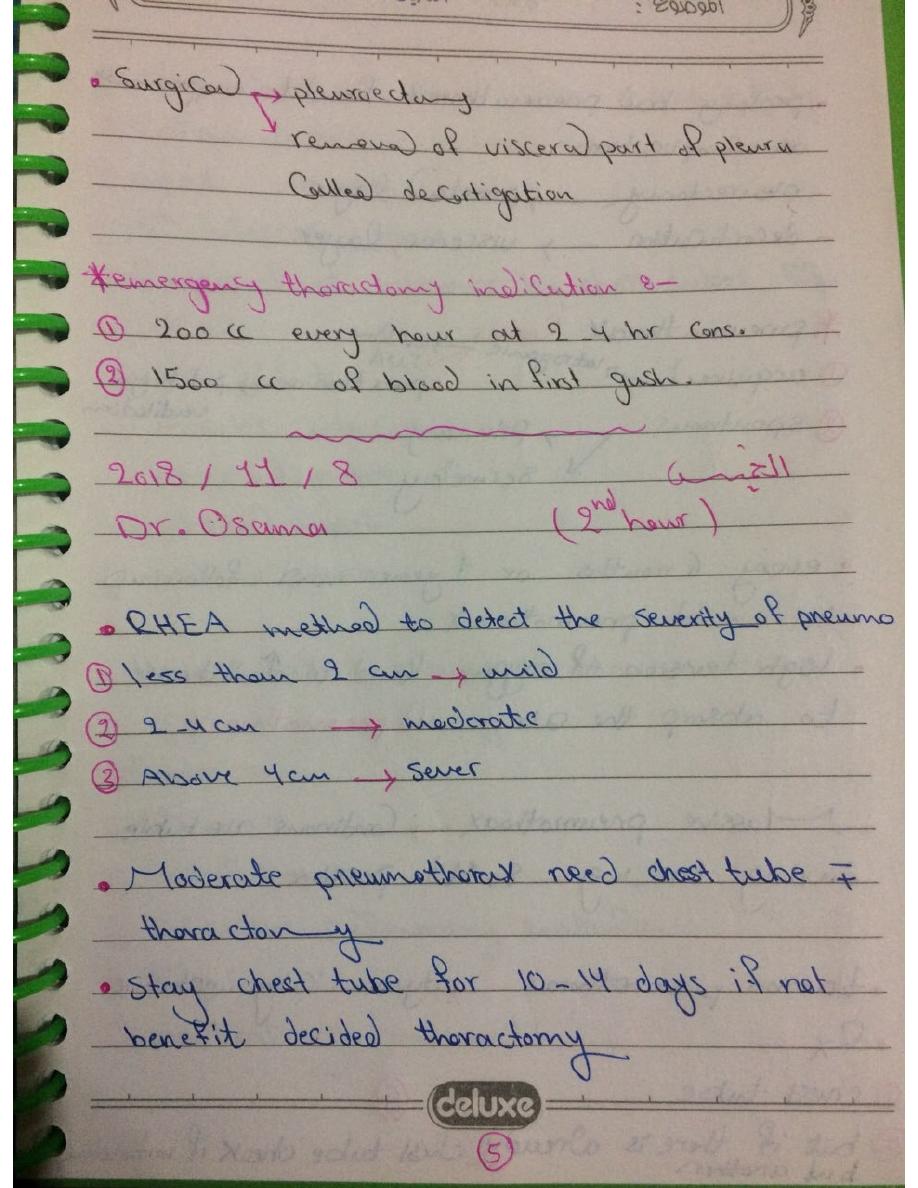 الموضوع :
• Surgical → pleuroectomy
removal of visceral part of pleura
Called decortigation
*emergency thoractomy indication :-
① 200 cc every hour at 2-4 hr Cons.
② 1500 cc of blood in first gush.
2018 / 11 / 8 الخميس
Dr. Osama (2nd hour)
• RHEA method to detect the severity of pneumo
① less than 2 cm → mild
② 2-4 cm → moderate
③ Above 4 cm → Sever
• Moderate pneumothorax need chest tube ∓
thoractomy
• Stay chest tube for 10-14 days if not
benefit decided thoractomy
deluxe
⑤